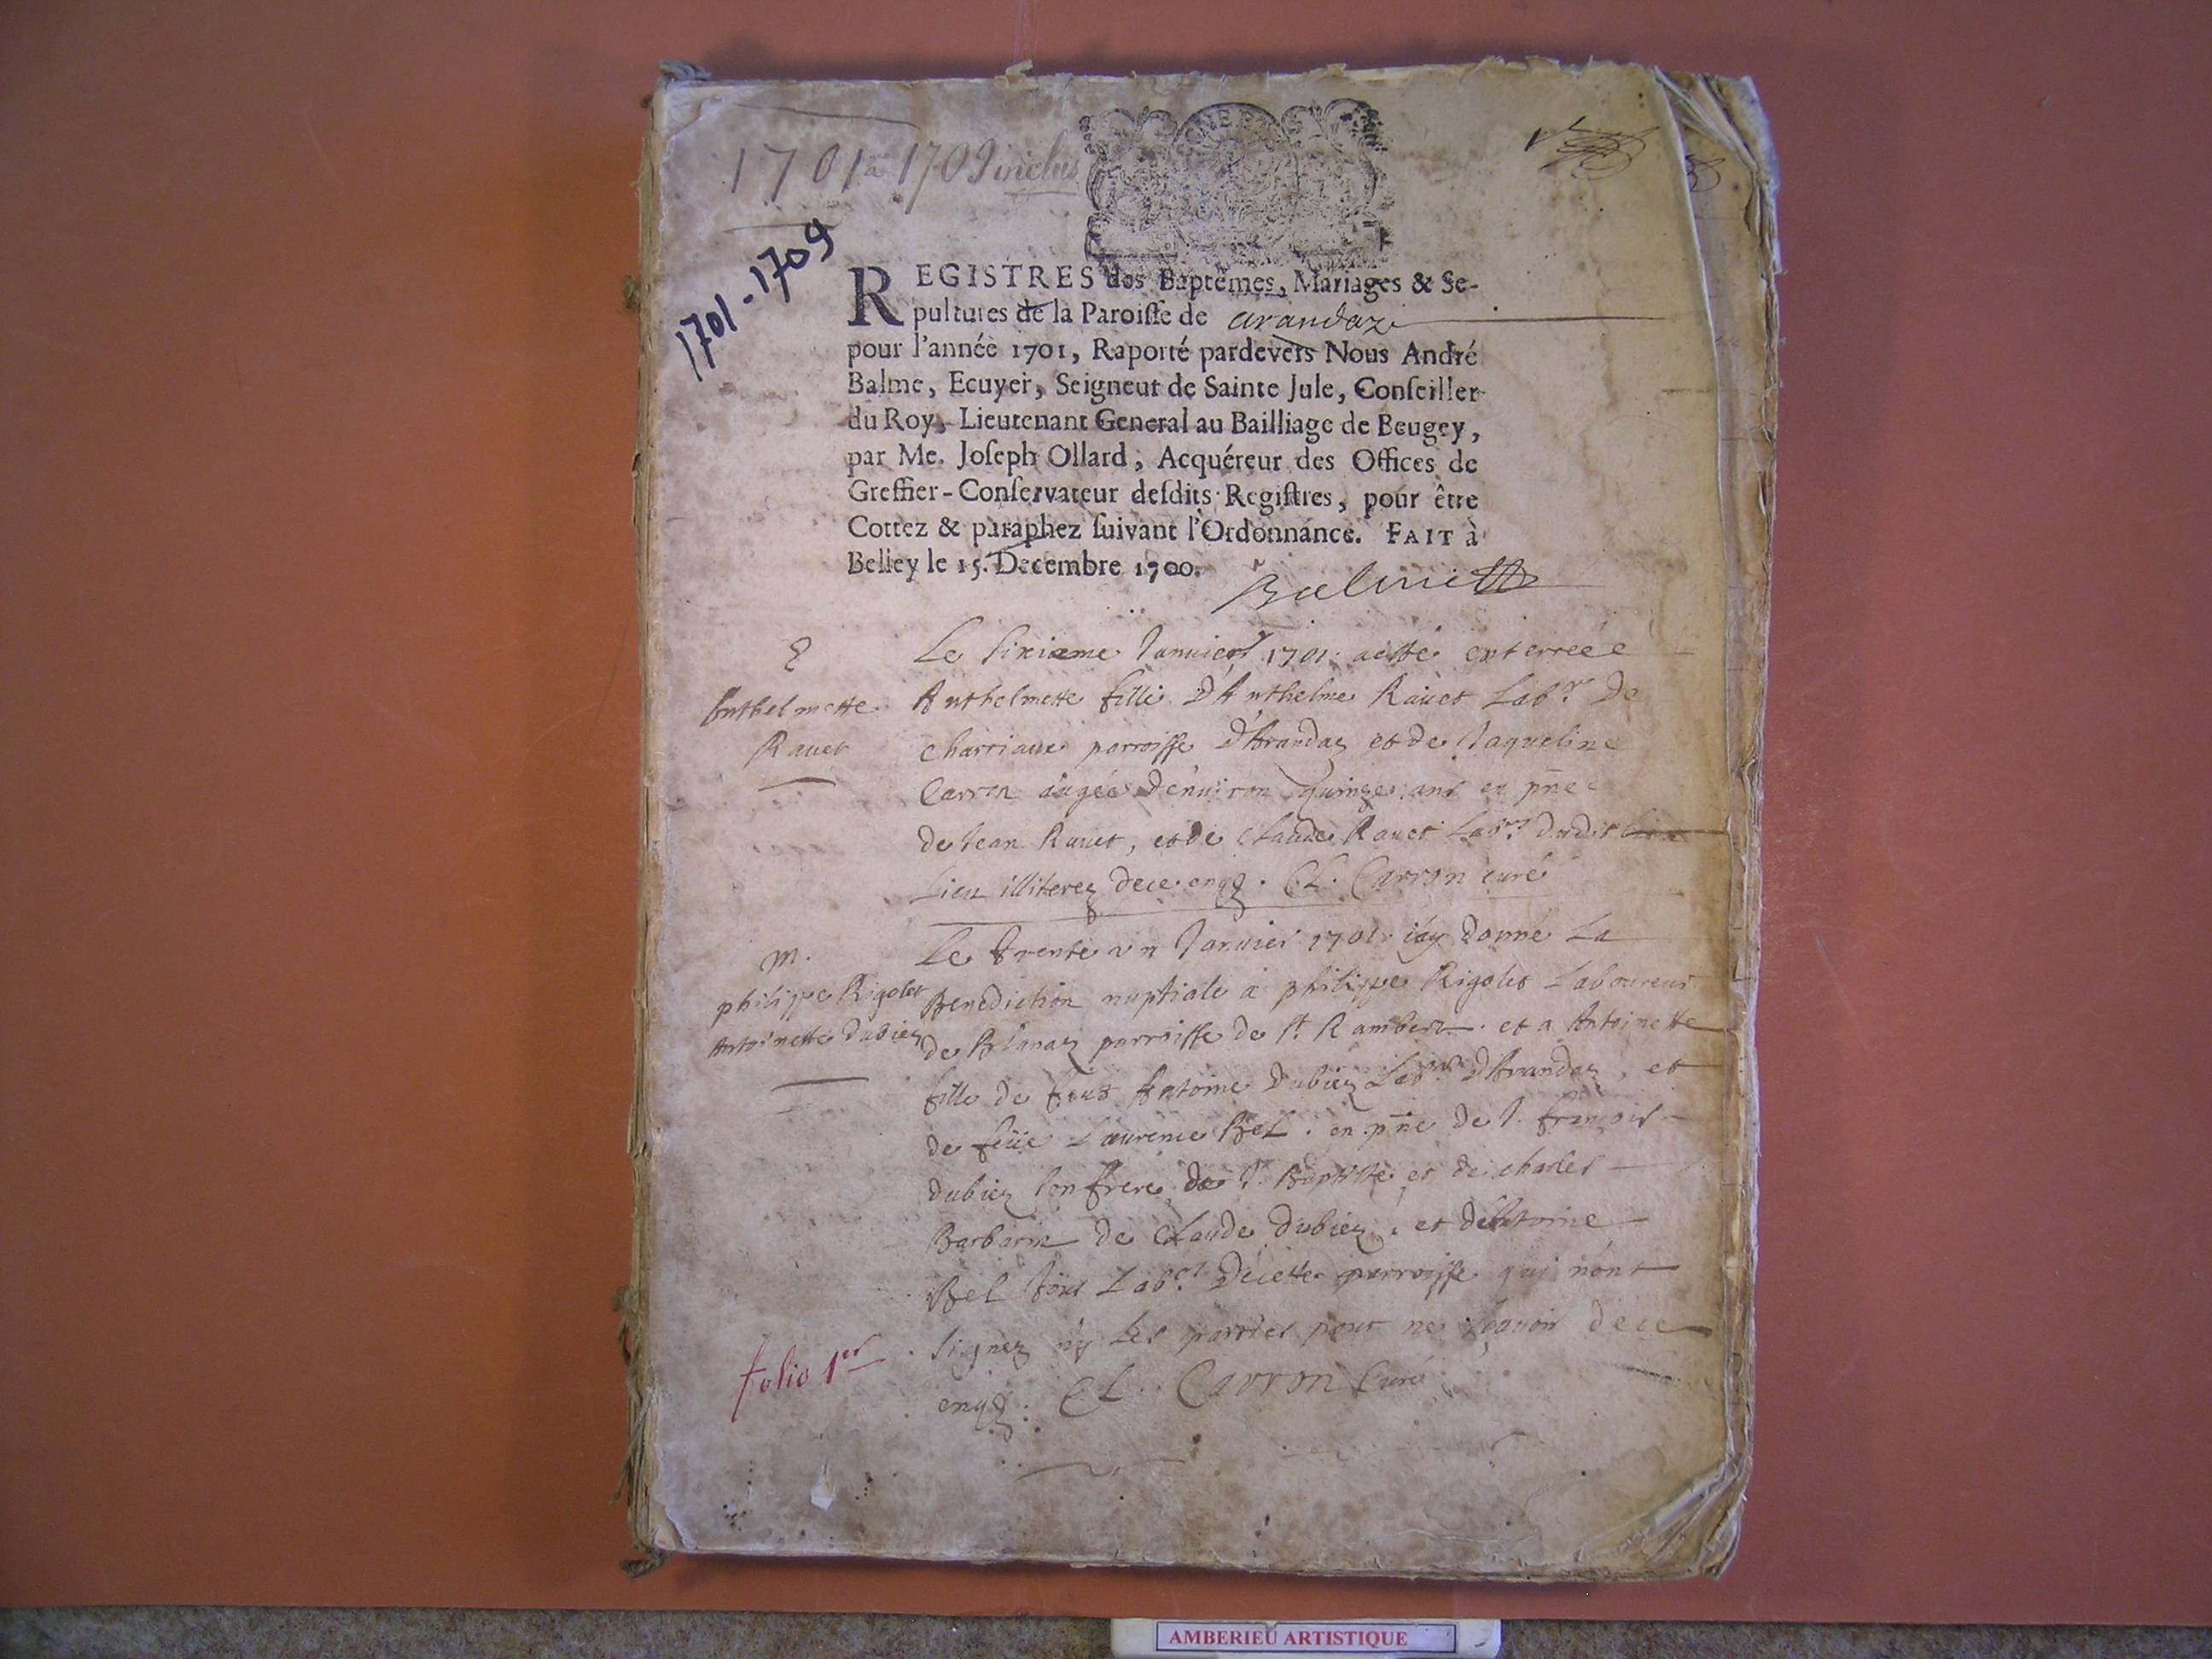 1701 a 1709 inclus
1701-1709
REGISTRES des Baptêmes, Mariages & Se-
pultures de la Paroisse de arandaz
pour l'année 1701, Raporté pardevers Nous André
Balme, Ecuyer, Seigneur de Sainte Jule, Conseiller
du Roy, Lieutenant General au Bailliage de Beugey,
par Me. Joseph Ollard, Acquéreur des Offices de
Greffier-Conservateur desdits Registres, pour être
Cottez & paraphez suivant l'Ordonnance. FAIT à
Belley le 15. Decembre 1700.
Balme
E
Anthelmette
Ravet
Le sixieme Janvier 1701 a esté enterréé
Anthelmette fille D'Anthelme Ravet Labr De
charriaux parroisse D'Arandaz et de Jaqueline
Carron âagée d'environ quinze ans en pñce
de Jean Ravet, et de Claude Ravet Labrs dudit
Lieu illiterez de ce enqz. CL. Carron curé
M.
philippe Rigolet
Antoinette Dubiez
Le trente un Janvier 1701 j'ay donné La
Benediction nuptiale à philippe Rigolet Laboureur
de Blanaz parroisse de St Rambert et a Antoinette
fille de feus Antoine Dubiez Labr D'Arandaz, et
de feüe Laurence Bel. en pñce de J. françois
Dubiez son frere de J. Baptiste et de charles
Barbarin de Claude Dubiez, et d'Antoine
Bel tous Labrs De cette parroisse qui n'ont
signez ny les parties pour ne sçavoir de ce
enqz. CL. Carron Curé
folio 1er
AMBERIEU ARTISTIQUE